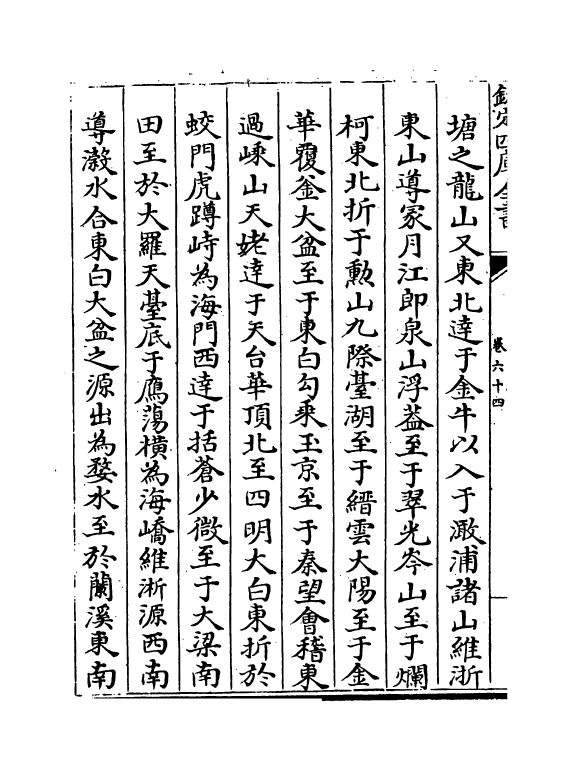 欽定四庫全書
卷六十四
塘之龍山又東北達于金牛以入于澉浦諸山維浙
東山導冢月江郎泉山浮葢至于翠光岑山至于爛
柯東北折于勲山九際臺湖至于縉雲大陽至于金
華覆釜大盆至于東白勾乘玉京至于秦望會稽東
過嵊山天姥達于天台華頂北至四明大白東折於
蛟門虎蹲峙為海門西達于括蒼少微至于大梁南
田至於大羅天臺底于鴈蕩横為海嶠維浙源西南
導瀫水合東白大盆之源出為婺水至於蘭溪東南